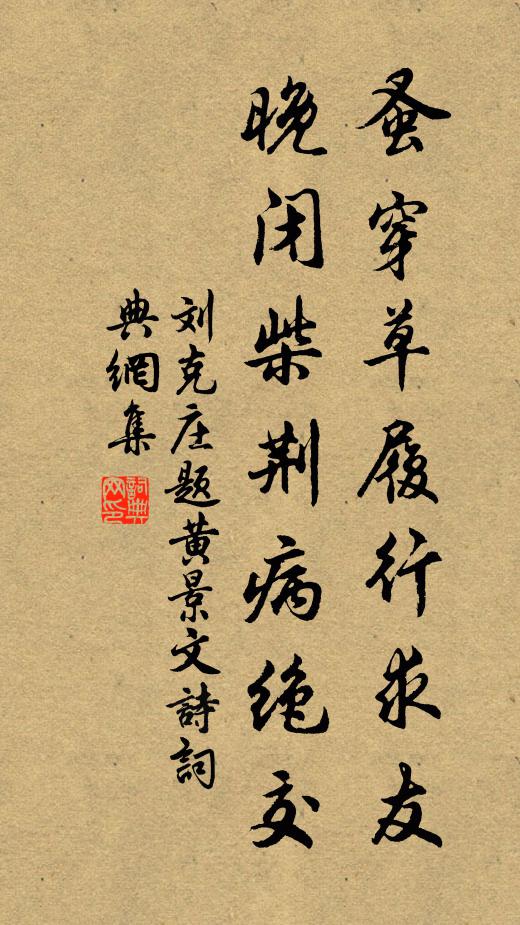 蚤穿草履行求友
晚闭柴荆病绝交
刘克庄题黄景文詩詞
典網集
詞典
网印